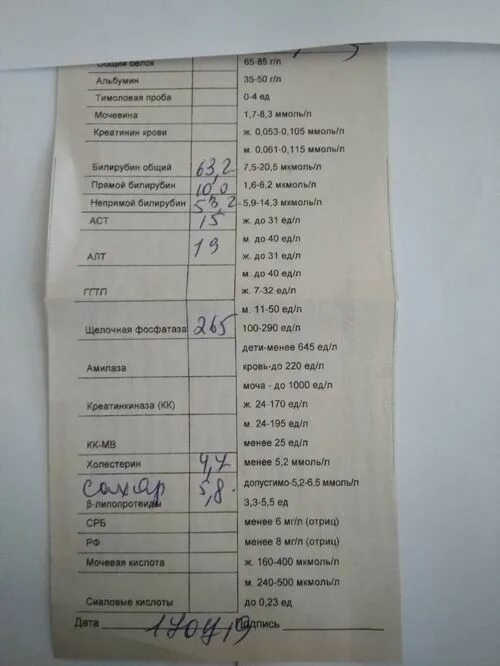 Общий белок 65-85 г/л
Альбумин 35-50 г/л
Тимоловая проба 0-4 ед
Мочевина 1,7-8,3 ммоль/л
Креатинин крови ж. 0,053-0,105 ммоль/л
м. 0,061-0,115 ммоль/л
Билирубин общий 63,2 7,5-20,5 мкмоль/л
Прямой билирубин 10,0 1,6-6,2 мкмоль/л
Непрямой билирубин 53,2 5,9-14,3 мкмоль/л
АСТ 15 ж. до 31 ед/л
м. до 40 ед/л
АЛТ 19 ж. до 31 ед/л
м. до 40 ед/л
ГГТП ж. 7-32 ед/л
м. 11-50 ед/л
Щелочная фосфатаза 265 100-290 ед/л
дети-менее 645 ед/л
Амилаза кровь-до 220 ед/л
моча - до 1000 ед/л
Креатинкиназа (КК) ж. 24-170 ед/л
м. 24-195 ед/л
КК-МВ менее 25 ед/л
Холестерин 4,7 менее 5,2 ммоль/л
сахар 5,8 допустимо-5,2-6,5 ммоль/л
β-липопротеиды 3,3-5,5 ед
СРБ менее 6 мг/л (отриц)
РФ менее 8 мг/л (отриц)
Мочевая кислота ж. 160-400 мкмоль/л
м. 240-500 мкмоль/л
Сиаловые кислоты до 0,23 ед
Дата 170419 Подпись